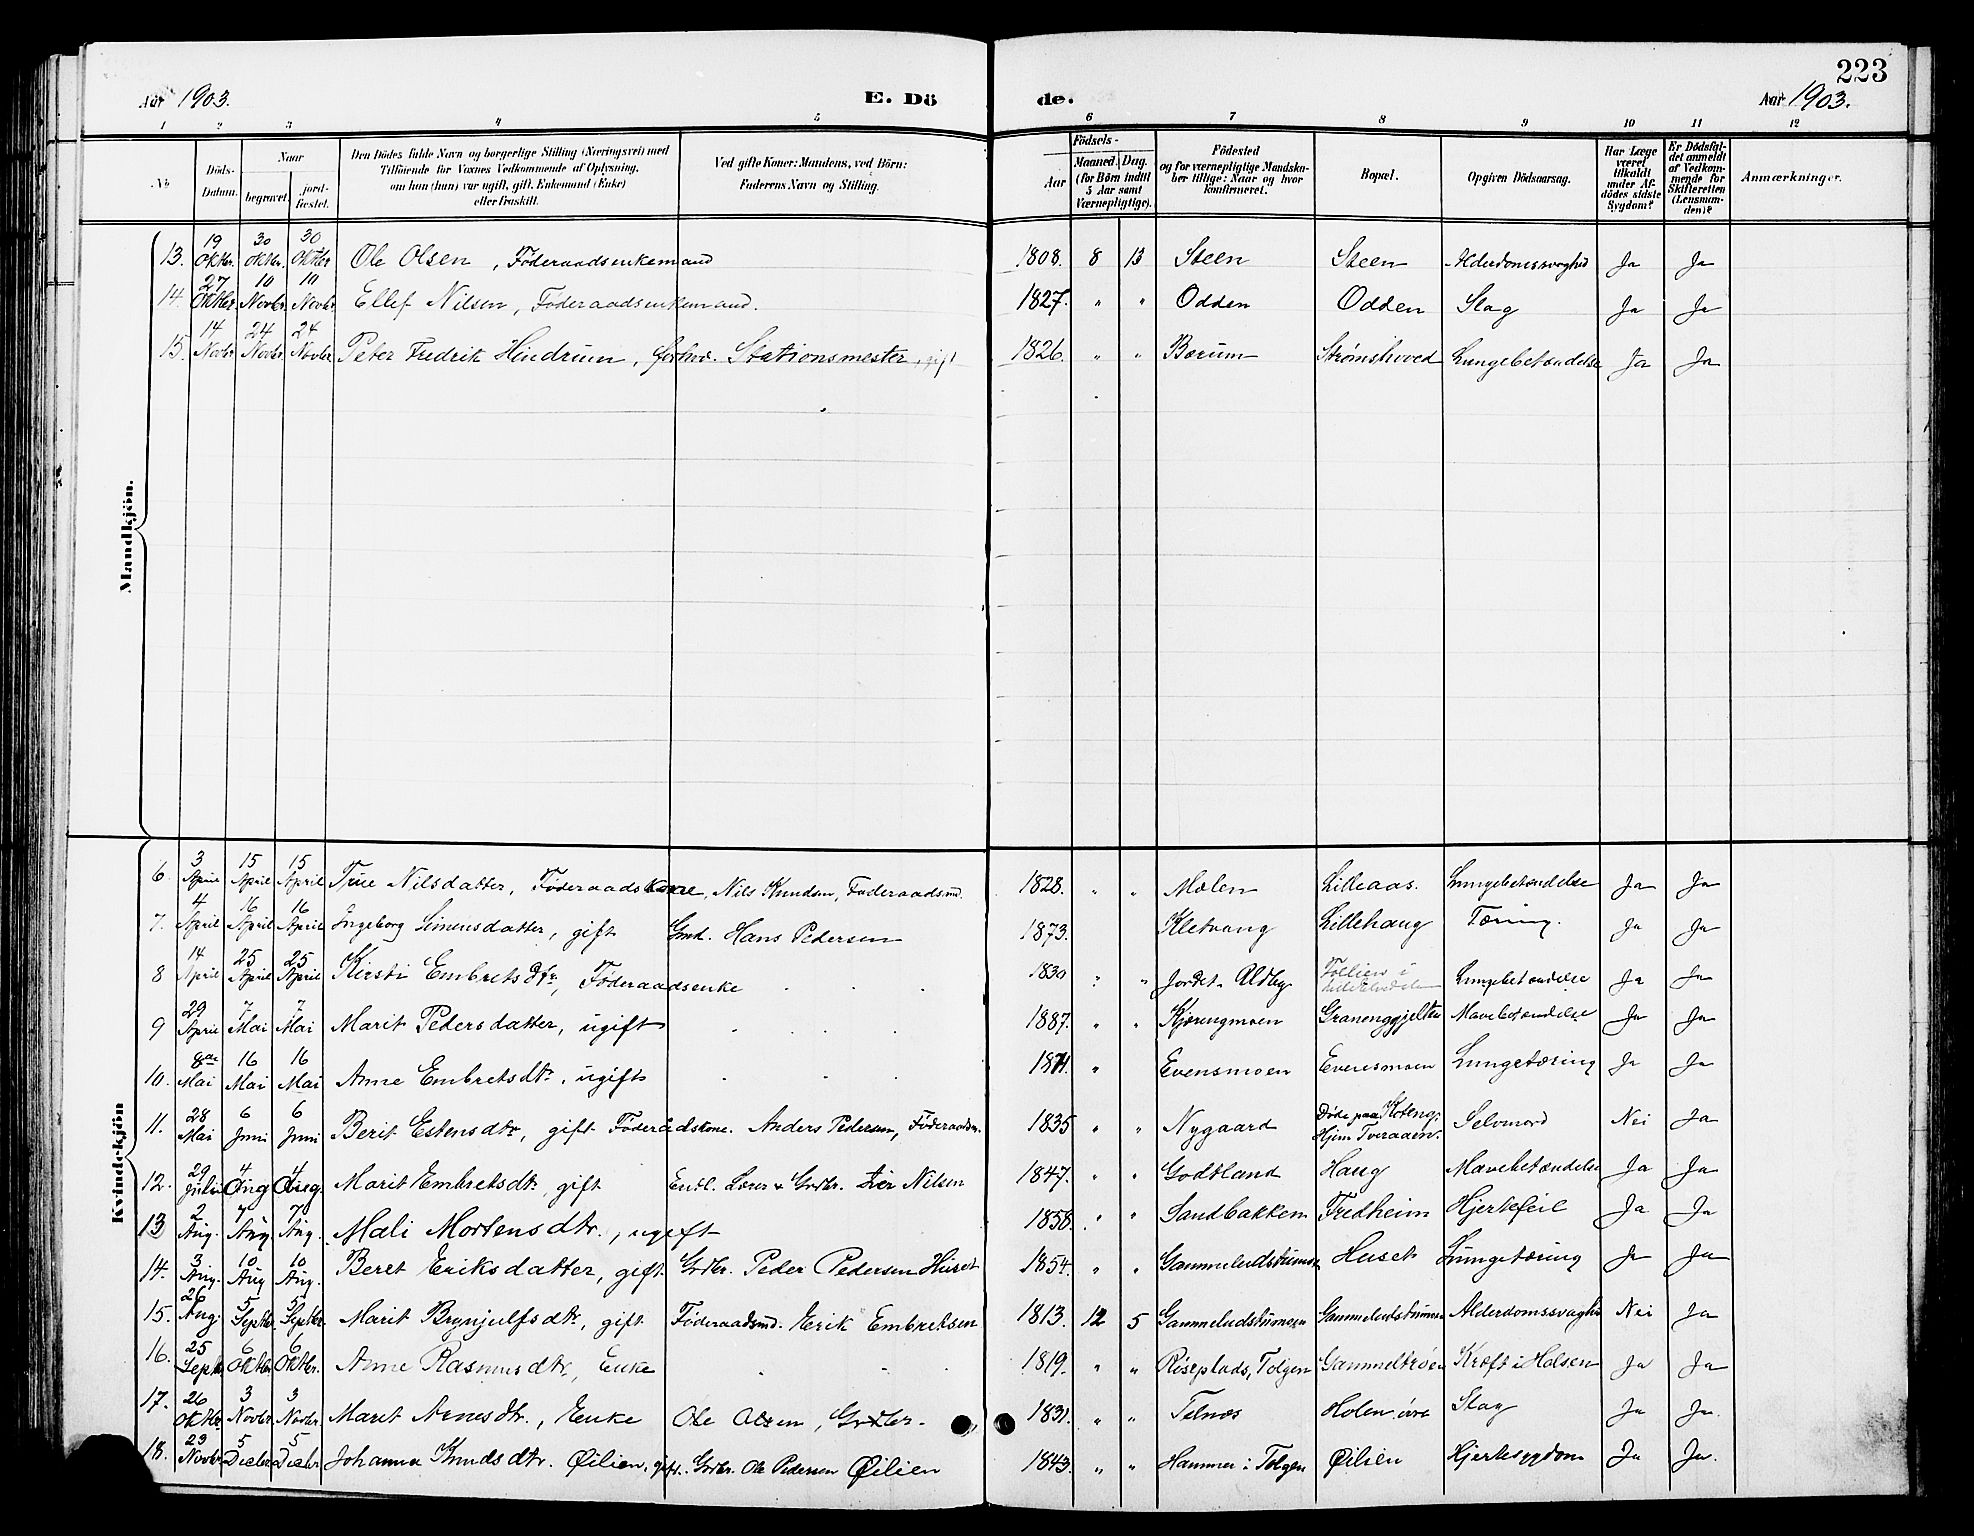 223
Aar 1903. E. Dö de. Aar 1903.
1 2 3 4 5 6 7 8 9 10 11 12
No Döds-Datum. Naar begravet. jord-fæstet. Den Dödes fulde Navn og borgerlige Stilling (Næringsvei) med Tilföiende for Voxnes Vedkommende af Oplysning, om han (hun) var ugift, gift, Enkemand (Enke) eller fraskilt. Ved gifte Koner: Mandens, ved Börn: Faderens Navn og Stilling. Födsels- Aar Maaned. Dag. (for Börn indtil 5 Aar samt Værnepligtige). Födested og for værnepligtige Mandskaber tillige: Naar og hvor konfirmeret. Bopæl. Opgiven Dödsaarsag. Har Læge været tilkaldt under Afdödes sidste Sygdom? Er Dödsfaldet anmeldt af Vedkommende for Skifteretten (Lensmanden)? Anmærkninger.
Mandkjön.
13. 19 Oktbr. 30 Oktbr. 30 Oktbr Ole Olsen, Føderaadsenkemand 1808. 8 13 Steen Steen Alderdomssvaghed Ja Ja
14. 27 Oktbr 10 Novbr. 10 Novbr Ellef Nilsen, Føderaadsenkemand. 1827. " " Odden Odden Slag Ja Ja
15. 14 Novbr 24 Novbr 24 Novbr Peter Fredrik Hindrum, forhv. Stationsmester, gift 1826. " " Bærum Strømshoved Lungebetændelse Ja Ja
Kvindekjön
6. 3 April 15 April 15 April Nilsdatter, Føderaadskone, Nils Knudsen, Føderaadsmd. 1828. " " Molen Lilleaas. Lungebetændelse Ja Ja
7. 4 April 16 April 16 April Ingeborg Simensdatter, gift Gmd. Hans Pedersen 1873. Kletvang Lillehaug Tæring. Ja Ja
8 14 April 25 April 25 April Kirsti Embretsdtr, Føderaadsenke . . . 1830 " " Jordet. Aldby i Lungebetændelse Ja Ja
9 29 April 7 Mai 7 Mai Marit Pedersdatter, ugift . . . 1887. " " Kjærengmoen Mavebetændelse Ja Ja
10. 8de Mai 16 Mai 16 Mai Anne Embretsdtr, ugift . . . " Evensmoen Evensmoen Lungetæring Ja Ja
11. 28 Mai 6 Juni 6 Juni Berit Estensdtr, gift Føderaadskone. Anders Pedersen, Føderaadsm. 1835 " " Nygaard Døde paa Koteng, Hjem Tveraaen. Selvmord Nei Ja
12. 29 Juli 4 Aug 4 Aug. Marit Embretsdtr, gift Lærer & Grdbr. Iver Nilsen 1847. " " Godtland Haug Mavebetændelse Ja Ja
13 2 Aug. 7 Aug 7 Aug. Mali Mortensdtr., ugift 1858. " " Sandbakken Fredheim Hjertefeil Ja Ja
14. 3 Aug. 10 Aug 10 Aug. Beret Eriksdatter, gift Grdbr. Peder Pedersen Huset 1854. " " Huset Lungetæring Ja Ja
15. 26 Aug. 5 Septbr. 5 Septbr. Marit Brynjulfsdtr, gift Føderaadsmd. Erik Embretsen 1813. 12 5 Alderdomssvaghed Nei Ja
16. 25 Septbr 6 Oktbr. 6 Oktbr. Anne Rasmusdtr, Enke . . 1819. " " Røseplads, Tolgen Gammeltrøen Kræft i Halsen Ja Ja
17. 26 Oktbr. 3 Novbr 3 Novbr Marit Arnesdtr., Enke Ole Olsen, Grdbr. 1831. " " Telnæs Holen øvre Slag Ja Ja.
18. 23 Novbr 5 Decbr 5 Decbr Johanna Knudsdtr. Øilien, gift. Grdbr. Ole Pedersen Øilien 1843. " " Hammer i Tolgen Øilien Hjertesygdom Ja Ja.